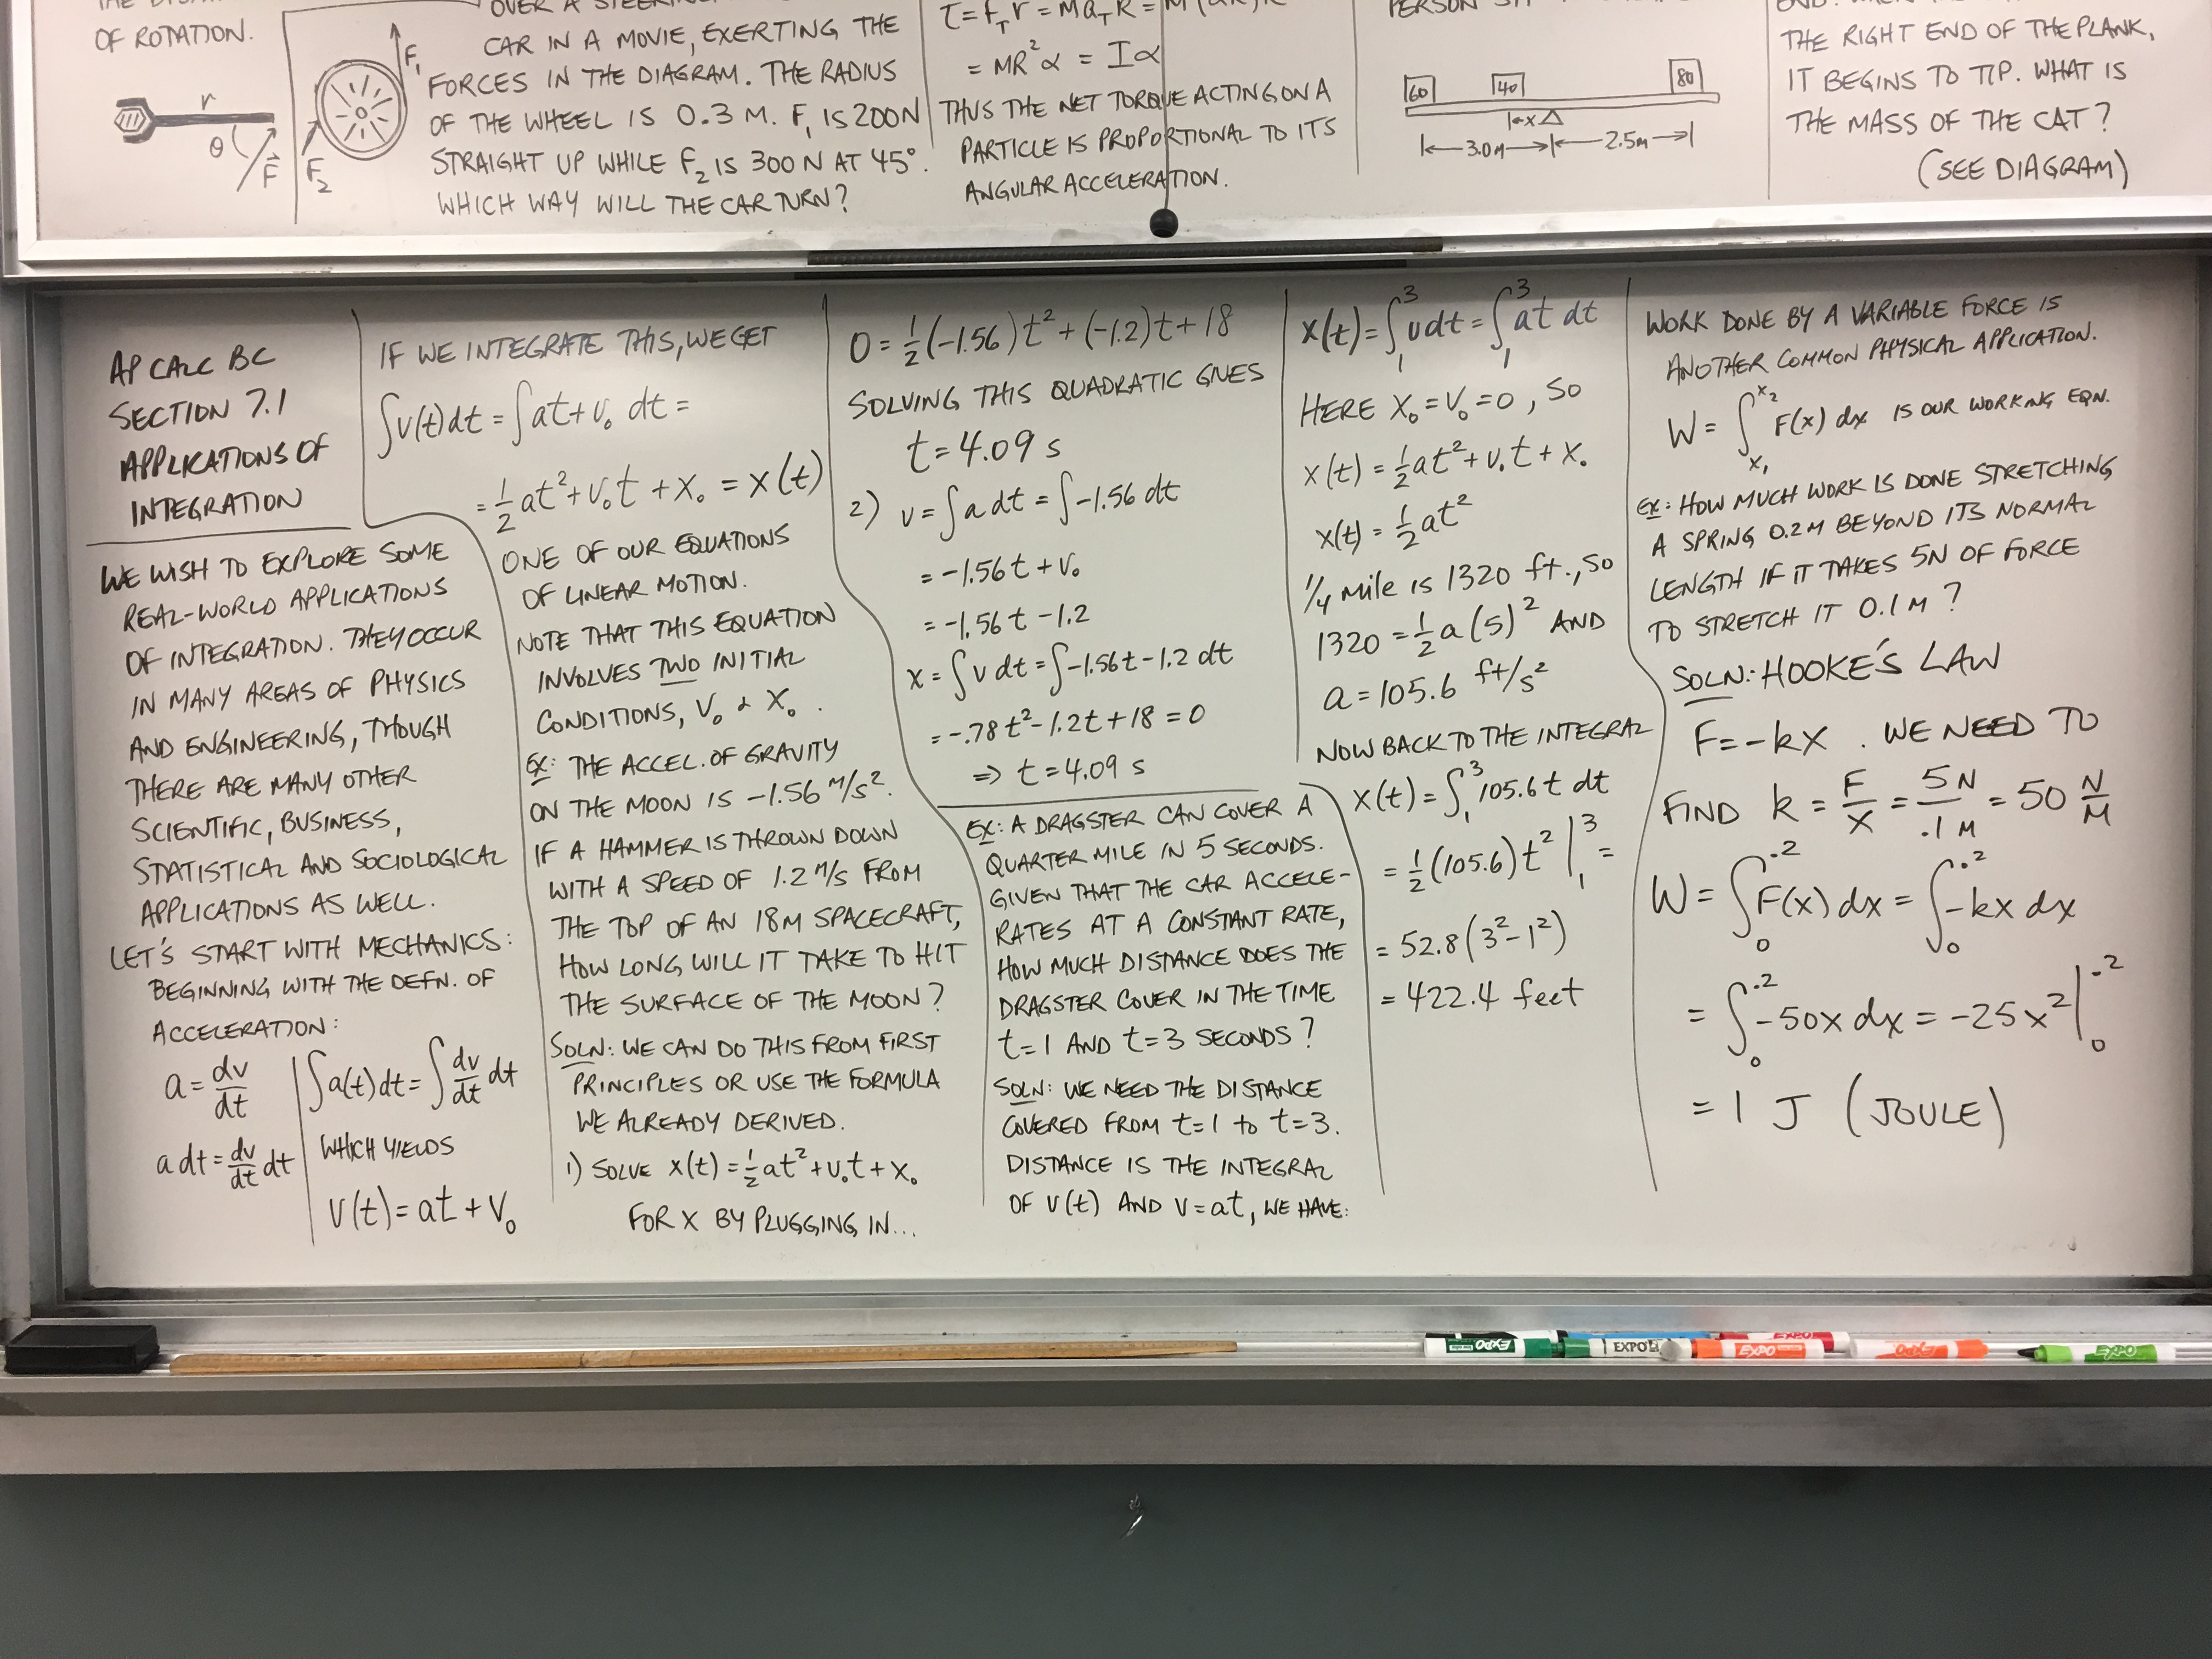 OF ROTATION.
r
θ
F
F₁
F₂
OVER A
CAR IN A MOVIE, EXERTING THE
FORCES IN THE DIAGRAM. THE RADIUS
OF THE WHEEL IS 0.3 M. F₁ IS 200N
STRAIGHT UP WHILE F₂ IS 300 N AT 45°.
WHICH WAY WILL THE CAR TURN?
τ = F_T r = M a_T R =
= MR²α = Iα
THUS THE NET TORQUE ACTING ON A
PARTICLE IS PROPORTIONAL TO ITS
ANGULAR ACCELERATION.
PERSON
60
40
80
x
3.0M
2.5m
THE RIGHT END OF THE PLANK,
IT BEGINS TO TIP. WHAT IS
THE MASS OF THE CAT?
(SEE DIAGRAM)
AP CALC BC
SECTION 7.1
APPLICATIONS OF
INTEGRATION
WE WISH TO EXPLORE SOME
REAL-WORLD APPLICATIONS
OF INTEGRATION. THEY OCCUR
IN MANY AREAS OF PHYSICS
AND ENGINEERING, THOUGH
THERE ARE MANY OTHER
SCIENTIFIC, BUSINESS,
STATISTICAL AND SOCIOLOGICAL
APPLICATIONS AS WELL.
LET'S START WITH MECHANICS:
BEGINNING WITH THE DEFN. OF
ACCELERATION:
a = dv/dt
a dt = dv/dt dt
∫a(t) dt = ∫ dv/dt dt
WHICH YIELDS
v(t) = at + v₀
IF WE INTEGRATE THIS, WE GET
∫v(t) dt = ∫at + v₀ dt =
= ½ at² + v₀t + x₀ = x(t)
ONE OF OUR EQUATIONS
OF LINEAR MOTION.
NOTE THAT THIS EQUATION
INVOLVES TWO INITIAL
CONDITIONS, V₀ & X₀.
EX: THE ACCEL. OF GRAVITY
ON THE MOON IS -1.56 M/S².
IF A HAMMER IS THROWN DOWN
WITH A SPEED OF 1.2 M/S FROM
THE TOP OF AN 18M SPACECRAFT,
HOW LONG WILL IT TAKE TO HIT
THE SURFACE OF THE MOON?
SOLN: WE CAN DO THIS FROM FIRST
PRINCIPLES OR USE THE FORMULA
WE ALREADY DERIVED.
1) SOLVE x(t) = ½ at² + v₀t + x₀
FOR X BY PLUGGING IN...
0 = ½(-1.56)t² + (-1.2)t + 18
SOLVING THIS QUADRATIC GIVES
t = 4.09 s
2) v = ∫a dt = ∫-1.56 dt
= -1.56t + v₀
= -1.56t - 1.2
x = ∫v dt = ∫-1.56t - 1.2 dt
= -.78t² - 1.2t + 18 = 0
⇒ t = 4.09 s
EX: A DRAGSTER CAN COVER A
QUARTER MILE IN 5 SECONDS.
GIVEN THAT THE CAR ACCELE-
RATES AT A CONSTANT RATE,
HOW MUCH DISTANCE DOES THE
DRAGSTER COVER IN THE TIME
t=1 AND t=3 SECONDS?
SOLN: WE NEED THE DISTANCE
COVERED FROM t=1 to t=3.
DISTANCE IS THE INTEGRAL
OF v(t) AND v=at, WE HAVE:
x(t) = ∫₁³ v dt = ∫₁³ at dt
HERE X₀ = V₀ = 0, SO
x(t) = ½ at² + v₀t + x₀
x(t) = ½ at²
¼ mile is 1320 ft., so
1320 = ½ a(5)² AND
a = 105.6 ft/s²
NOW BACK TO THE INTEGRAL
x(t) = ∫₁³ 105.6 t dt
= ½(105.6)t² |₁³ =
= 52.8(3² - 1²)
= 422.4 feet
WORK DONE BY A VARIABLE FORCE IS
ANOTHER COMMON PHYSICAL APPLICATION.
W = ∫ₓ₁ˣ² F(x) dx IS OUR WORKING EQN.
EX: HOW MUCH WORK IS DONE STRETCHING
A SPRING 0.2M BEYOND ITS NORMAL
LENGTH IF IT TAKES 5N OF FORCE
TO STRETCH IT 0.1M?
SOLN: HOOKE'S LAW
F = -kx. WE NEED TO
FIND k = F/X = 5N/.1M = 50 N/M
W = ∫₀^.2 F(x) dx = ∫₀^.2 -kx dx
= ∫₀^.2 -50x dx = -25x² |₀^.2
= 1 J (JOULE)
EXPO
EXPO
EXPO
EXPO
EXPO
EXPO